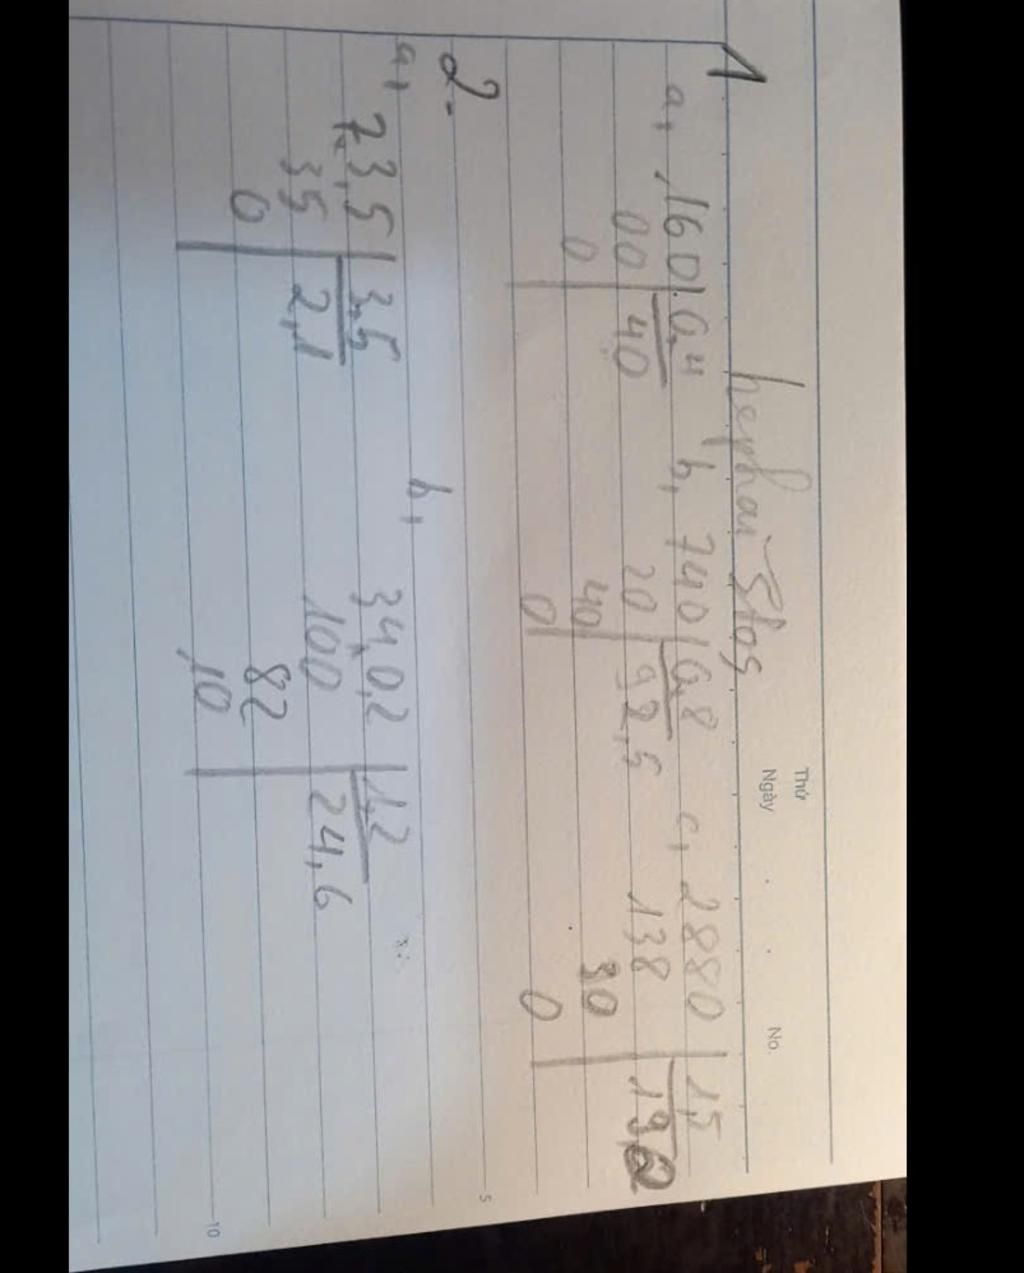 Thứ
Ngày . . No.
hephai Stos
1
a, 160 | 0,4 b, 740 | 0,8 c, 2880 | 1,5
00 40 20 92,5 138 192
0 40 30
0 0
2.
a, b,
73,5 | 3,5 34,0,2 | 1,2
35 2,1 100 24,6
0 82
10
5
10